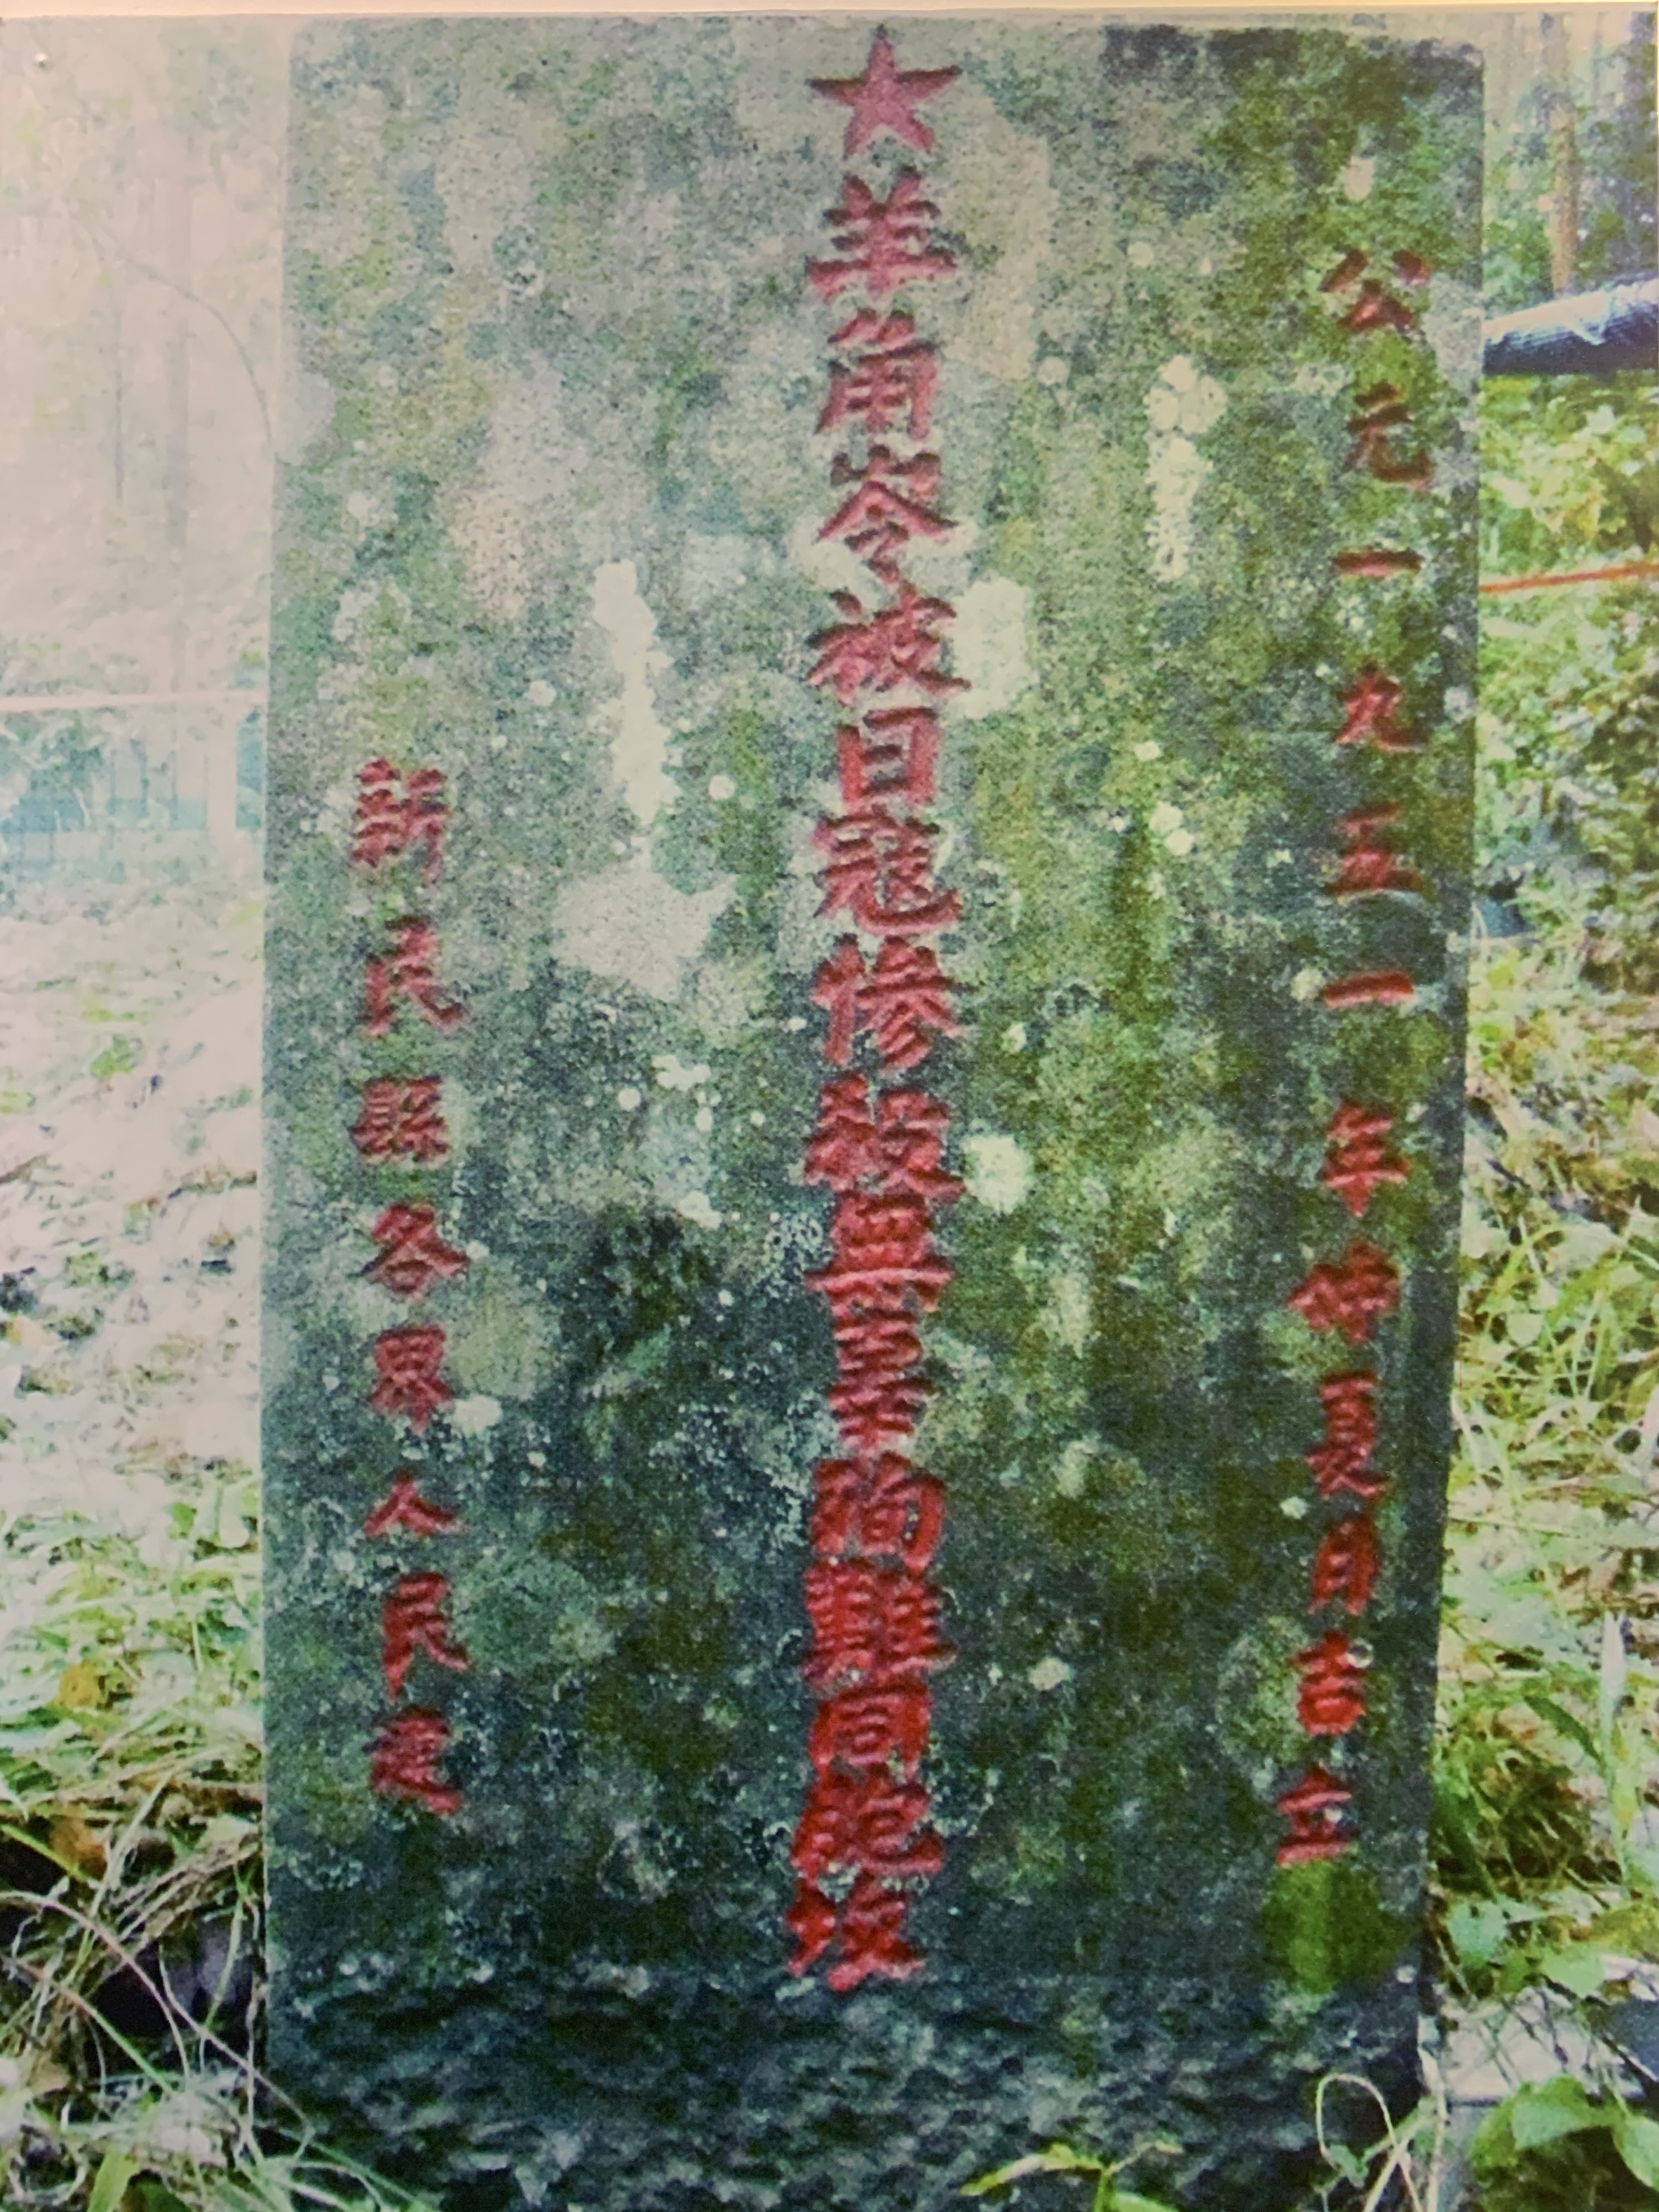 公元一九五一年仲夏月吉立
★羊角岺被日寇慘殺無辜殉難同胞坟
新民縣各界人民建